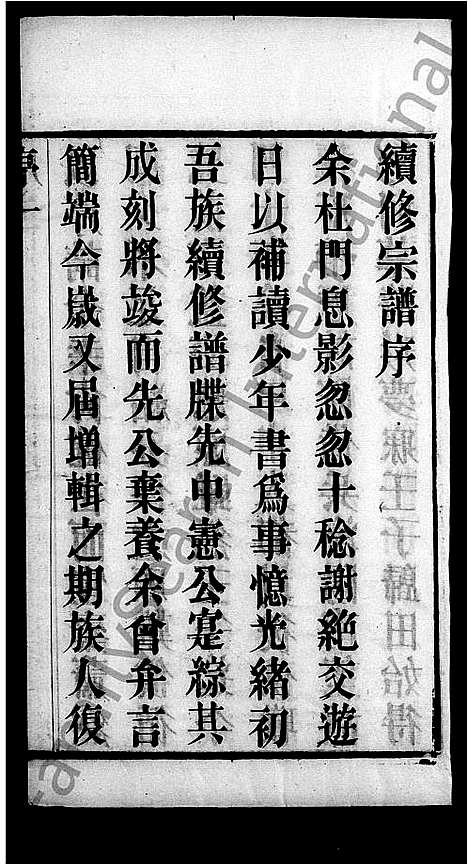 續修宗譜序
余杜門息影忽忽十稔謝絶交遊
日以補讀少年書爲事憶光緒初
吾族續修譜牒先中憲公寔綜其
成刻將竣而先公棄養余曾弁言
簡端今歲又屆增輯之期族人復
序一